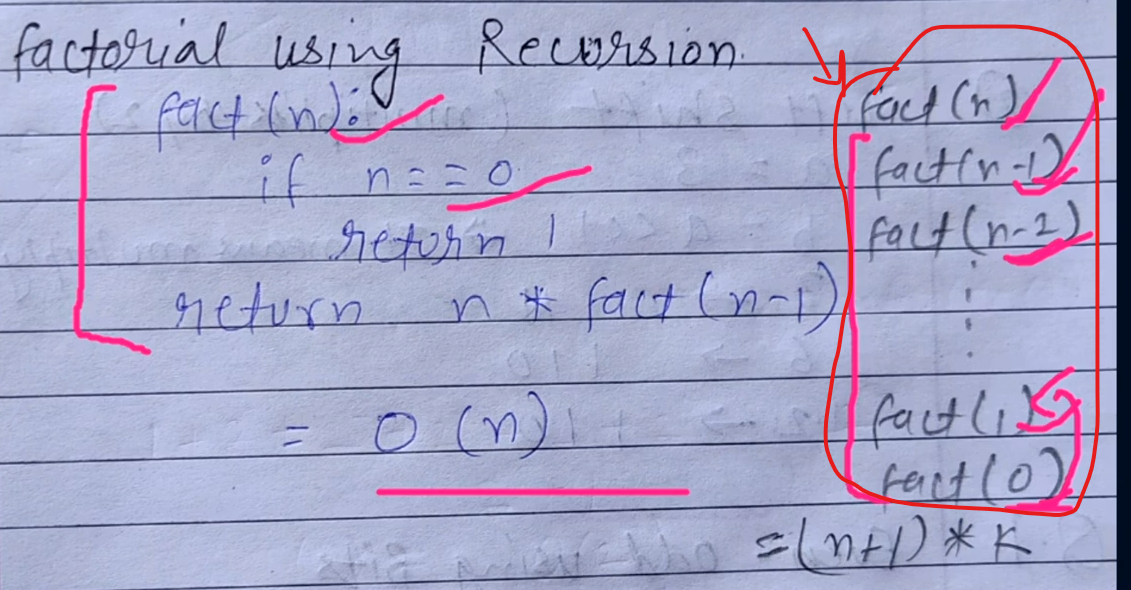 factorial using Recursion.
fact (n):
if n == 0
return 1
return n * fact (n-1)
= O (n)
fact (n)
fact (n-1)
fact (n-2)
.
.
.
fact (1)
fact (0)
= (n+1) * K